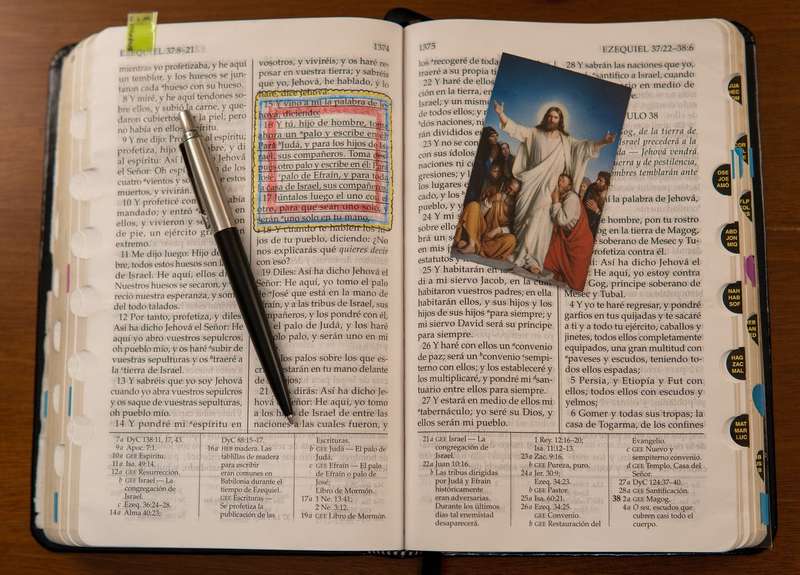 EZEQUIEL 37:8–21
1374
mientras yo profetizaba, y he aquí
un temblor, y los huesos se jun-
taron cada hueso con su hueso.
8 Y miré, y he aquí tendones so-
bre ellos, y subió la carne, y que-
daron cubiertos por la piel; pero
no había en ellos espíritu.
9 Y me dijo: Profetiza al espíritu;
profetiza, hijo de hombre, y di
al espíritu: Así ha dicho Jehová el
Señor: Oh espíritu, ven de los
cuatro vientos y sopla sobre estos
muertos, y vivirán.
10 Y profeticé como me había
mandado; y entró espíritu en
ellos, y vivieron y se pusieron
de pie, un ejército grande en
extremo.
11 Me dijo luego: Hijo de hom-
bre, todos estos huesos son la casa
de Israel. He aquí, ellos dicen:
Nuestros huesos se secaron, y pe-
reció nuestra esperanza, y somos
del todo talados.
12 Por tanto, profetiza, y diles:
Así ha dicho Jehová el Señor: He
aquí yo abro vuestros sepulcros,
oh pueblo mío, y os haré subir de
vuestras sepulturas, y os traeré a
la tierra de Israel.
13 Y sabréis que yo soy Jehová
cuando yo abra vuestros sepulcros
y os saque de vuestras sepulturas,
oh pueblo mío.
14 Y pondré mi espíritu en
vosotros, y viviréis, y os haré re-
posar en vuestra tierra; y sabréis
que yo, Jehová, he hablado, y lo
haré, dice Jehová.
15 Y vino a mí la palabra de Je-
hová, diciendo:
16 Y tú, hijo de hombre, toma
ahora un palo y escribe en él:
Para Judá, y para los hijos de Is-
rael, sus compañeros. Toma des-
pués otro palo y escribe en él: Para
José, palo de Efraín, y para toda
la casa de Israel, sus compañeros.
17 Júntalos luego el uno con el
otro, para que sean uno solo, y
serán uno solo en tu mano.
18 Y cuando te hablen los hi-
jos de tu pueblo, diciendo: ¿No
nos explicarás qué quieres decir
con eso?
19 Diles: Así ha dicho Jehová el
Señor: He aquí, yo tomo el palo
de José que está en la mano de
Efraín, y a las tribus de Israel, sus
compañeros, y los pondré con él,
con el palo de Judá, y los haré
un solo palo, y serán uno en mi
los palos sobre los que es-
cribas estarán en tu mano delante
de sus ojos.
21 Y les dirás: Así ha dicho
Jehová el Señor: He aquí, yo tomo
a los hijos de Israel de entre las
naciones a las cuales fueron, y
7a DyC 138:11, 17, 43.
9a Apoc. 7:1.
10a GEE Espíritu.
11a Isa. 49:14.
12a GEE Resurrección.
b GEE Israel — La
congregación de
Israel.
c Ezeq. 36:24–28.
14a Alma 40:23;
DyC 88:15–17.
16a HEB madera. Las
tablillas de madera
para escribir
eran comunes en
Babilonia durante el
tiempo de Ezequiel.
GEE Escrituras —
Se profetiza la
publicación de las
Escrituras.
b GEE Judá — El palo de
Judá.
c GEE Efraín — El palo
de Efraín o palo de
José;
Libro de Mormón.
17a 1 Ne. 13:41;
2 Ne. 3:12.
19a GEE Libro de Mormón.
1375
EZEQUIEL 37:22–38:6
los recogeré de todas
traeré a su propia ti
22 Y haré
ción en la tierra, en
Israel; y un mismo
dos ellos; y
dos naciones,
rán divididos e
23 Y no se co
con sus ídolos
naciones ni c
gresiones; y l
los lugares e
cado, y los
pueblo, y y
24 Y mi
brá un s
en mis
estatutos y l
25 Y habitarán en
di a mi siervo Jacob, en la cual
habitaron vuestros padres; en ella
habitarán ellos, y sus hijos y los
hijos de sus hijos para siempre; y
mi siervo David será su príncipe
para siempre.
26 Y haré con ellos un convenio
de paz; será un convenio sempi-
terno con ellos; y los estableceré y
los multiplicaré, y pondré mi san-
tuario entre ellos para siempre.
27 Y estará en medio de ellos mi
tabernáculo; yo seré su Dios, y
ellos serán mi pueblo.
28 Y sabrán las naciones que yo,
santifico a Israel, cuando
en medio de
CAPÍTULO 38
Gog, de la tierra de
Israel precederá a la
— Jehová vendrá
y de pestilencia,
hombres temblarán ante
la palabra de Jehová,
hombre, pon tu rostro
Gog en la tierra de Magog,
soberano de Mesec y Tu-
profetiza contra él.
Así ha dicho Jehová el
He aquí, yo estoy contra
Gog, príncipe soberano de
Mesec y Tubal.
4 Y yo te haré regresar, y pondré
garfios en tus quijadas y te sacaré
a ti y a todo tu ejército, caballos y
jinetes, todos ellos completamente
equipados, una gran multitud con
paveses y escudos, teniendo to-
dos ellos espadas;
5 Persia, y Etiopía y Fut con
ellos; todos ellos con escudos y
yelmos;
6 Gomer y todas sus tropas; la
casa de Togarma, de los confines
21a GEE Israel — La
congregación de
Israel.
22a Juan 10:16.
b Las tribus dirigidas
por Judá y Efraín
históricamente
eran adversarias.
Durante los últimos
días tal enemistad
desaparecerá.
1 Rey. 12:16–20;
Isa. 11:12–13.
23a Zac. 9:16.
b GEE Pureza, puro.
24a Jer. 30:9;
Ezeq. 34:23.
b GEE Pastor.
25a Isa. 60:21.
26a Ezeq. 34:25.
GEE Convenio.
b GEE Restauración del
Evangelio.
c GEE Nuevo y
sempiterno convenio.
d GEE Templo, Casa del
Señor.
27a DyC 124:37–40.
28a GEE Santificación.
38 2a GEE Magog.
4a O sea, escudos que
cubren casi todo el
cuerpo.
OSE
JOS
AMÓ
ABD
JON
MIQ
NAH
HAB
SOF
HAG
ZAC
MAL
MAT
MAR
LUC